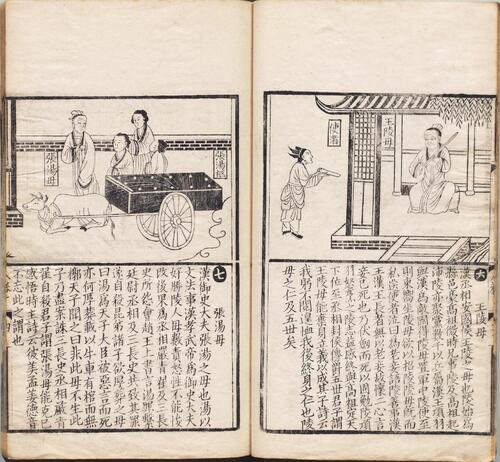 使者
王陵母
六
王陵母
漢丞相安國侯王陵之母也陵始為
縣邑豪高祖微時兄事陵及高祖起
沛陵亦聚黨數千以兵屬漢王項羽
與漢為敵國得陵母置軍中陵使至
則東嚮坐陵母欲以招陵陵母既而
私送使者泣曰為老妾語陵善事漢
王漢王長者無以老妾故懷二心言
妾已死也乃伏劍而死以固勉陵項
羽怒烹之陵志益感終與高祖定天
下位至丞相封侯傳爵五世君子謂
王陵母能棄身立義以成其子詩云
我躬不閱遑恤我後終身之仁也陵
母之仁及五世矣
張湯棺
張湯母
七
張湯母
漢御史大夫張湯之母也湯以
文法事漢孝武帝為御史大夫
好勝陵人母數責怒性不能悛
改後果為丞相嚴青翟及三長
史所怨會趙王上書言湯罪繫
廷尉丞相及三長史共致其罪
遂自殺昆弟諸子欲厚葬之母
曰湯為天子大臣被惡言而死
亦何厚葬載以牛車有棺而無
槨天子聞之曰非此母不生此
子乃盡案誅三長史丞相嚴青
翟自殺君子謂張湯母能克己
感悟時主詩云彼美孟姜德音
不忘此之謂也